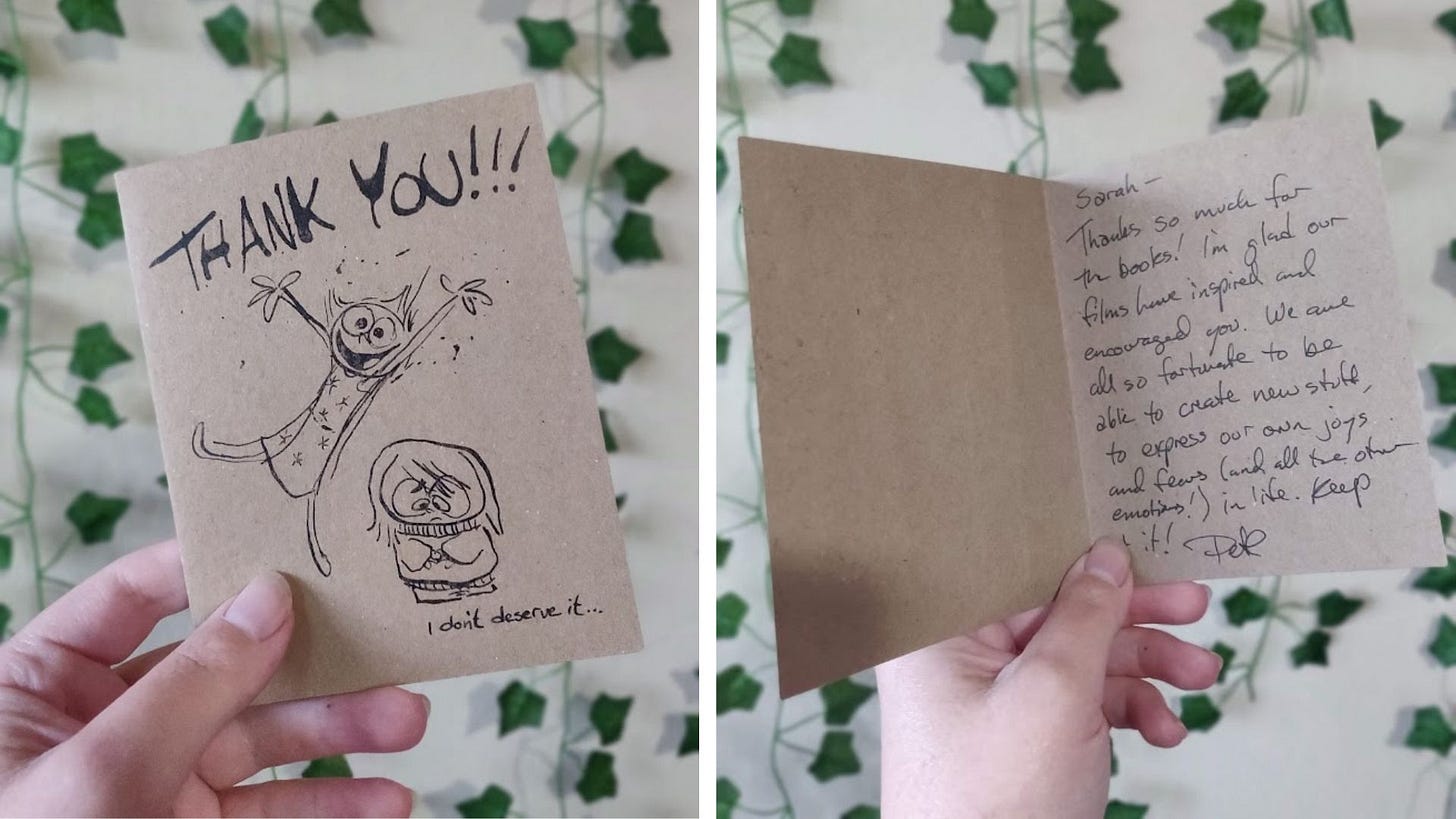 THANK YOU!!!
I don't deserve it...
Sarah—
Thanks so much for
the books! I'm glad our
films have inspired and
encouraged you. We are
all so fortunate to be
able to create new stuff,
to express our own joys
and fears (and all the other
emotions!) in life. Keep
it!
Pete